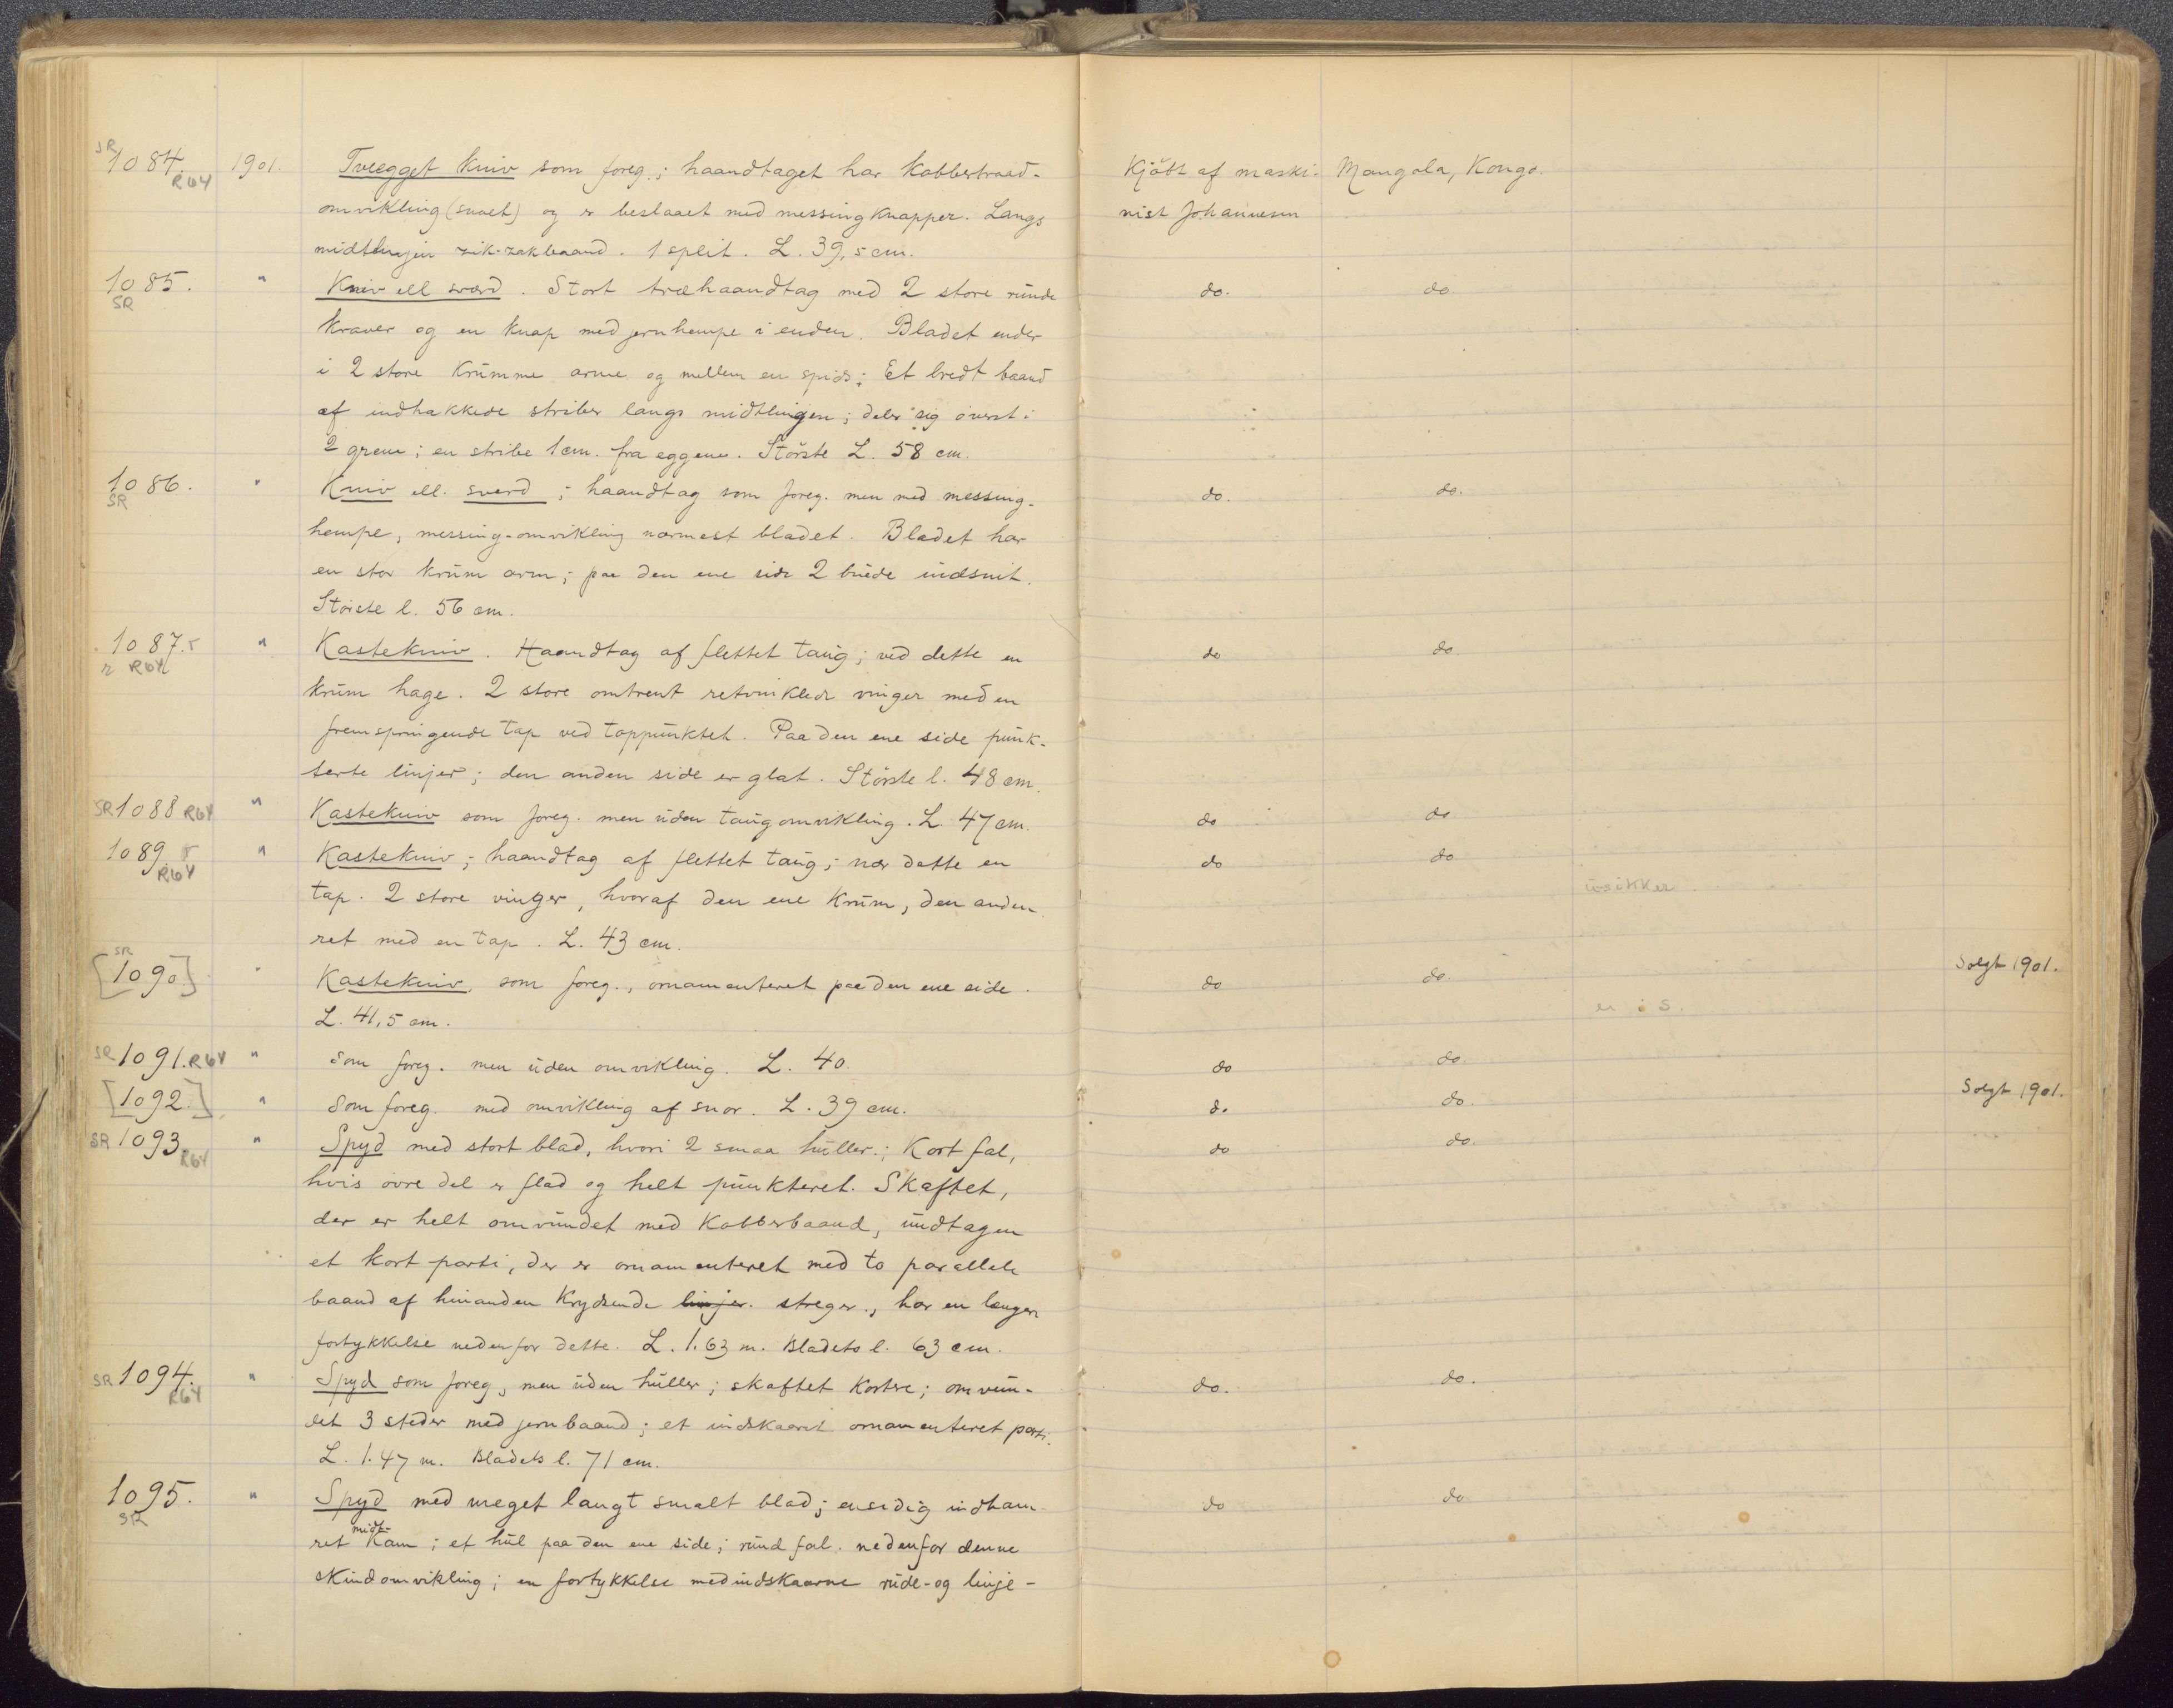 SR 1084. R64 1901. Tveegget kniv som foreg.; haandtaget har kobbertraad- Kjöbt af maski- Mangala, Kongo.
omvikling (snoet) og er beslaaet med messingknapper. Langs nist Johannesen
midtlinjen zik-zakbaand. 1 split. L. 39,5 cm.
1085. SR " Kniv ell sværd. Stort træhaandtag med 2 store runde do. do.
kraver og en knap med jernhempe i enden. Bladet ender
i 2 store krumme arme og mellem en spids; Et bredt baand
af indhakkede striber langs midtlinjen; deler sig överst i
2 grene; en stribe 1 cm. fra eggene. Störste L. 58 cm.
1086. SR " Kniv ell. sverd; haandtag som foreg. men med messing- do. do.
hempe, messing-omvikling nærmest bladet. Bladet har
en stor krum arm; paa den ene side 2 buede indsnit.
Störste l. 56 cm.
1087. r R64 " Kastekniv. Haandtag af flettet taug; ved dette en do do
krum hage. 2 store omtrent retvinklede vinger med en
fremspringende tap ved toppunktet. Paa den ene side punk-
terte linjer; den anden side er glat. Störste l. 48 cm.
SR 1088 R64 " Kastekniv som foreg. men uden taugomvikling. L. 47 cm. do do
1089 r R64 " Kastekniv; haandtag af flettet taug; nær dette en do do
tap. 2 store vinger, hvoraf den ene krum, den anden usikker
ret med en tap. L. 43 cm.
SR [1090.] " Kastekniv, som foreg., ornamenteret paa den ene side. do do Solgt 1901.
L. 41,5 cm. er i S.
SR 1091. R64 " Som foreg. men uden omvikling. L. 40. do do.
[1092.] " Som foreg. med omvikling af snor. L. 39 cm. do do. Solgt 1901.
SR 1093. R64 " Spyd med stort blad, hvori 2 smaa huller.; Kort fal, do do.
hvis övre del er flad og helt punkteret. Skaftet,
der er helt omvundet med Kobberbaand, undtagen
et kort parti, der er ornamenteret med to parallele
baand af hinanden krydsende linjer. streger., har en længere
fortykkelse nedenfor dette. L. 1.63 m. Bladets l. 63 cm.
SR 1094. R64 " Spyd som foreg, men uden huller; skaftet kortere; omvun- do. do.
det 3 steder med jernbaand; et indskaaret ornamenteret parti.
L. 1.47 m. Bladets l. 71 cm.
1095. SR " Spyd med meget langt smalt blad; ensidig indham- do do
ret midt-kam; et hul paa den ene side; rund fal. nedenfor denne
skindomvikling; en fortykkelse med indskaarne rude- og linje-